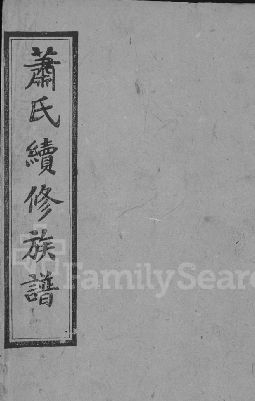 蕭氏續修族譜
FamilySearch